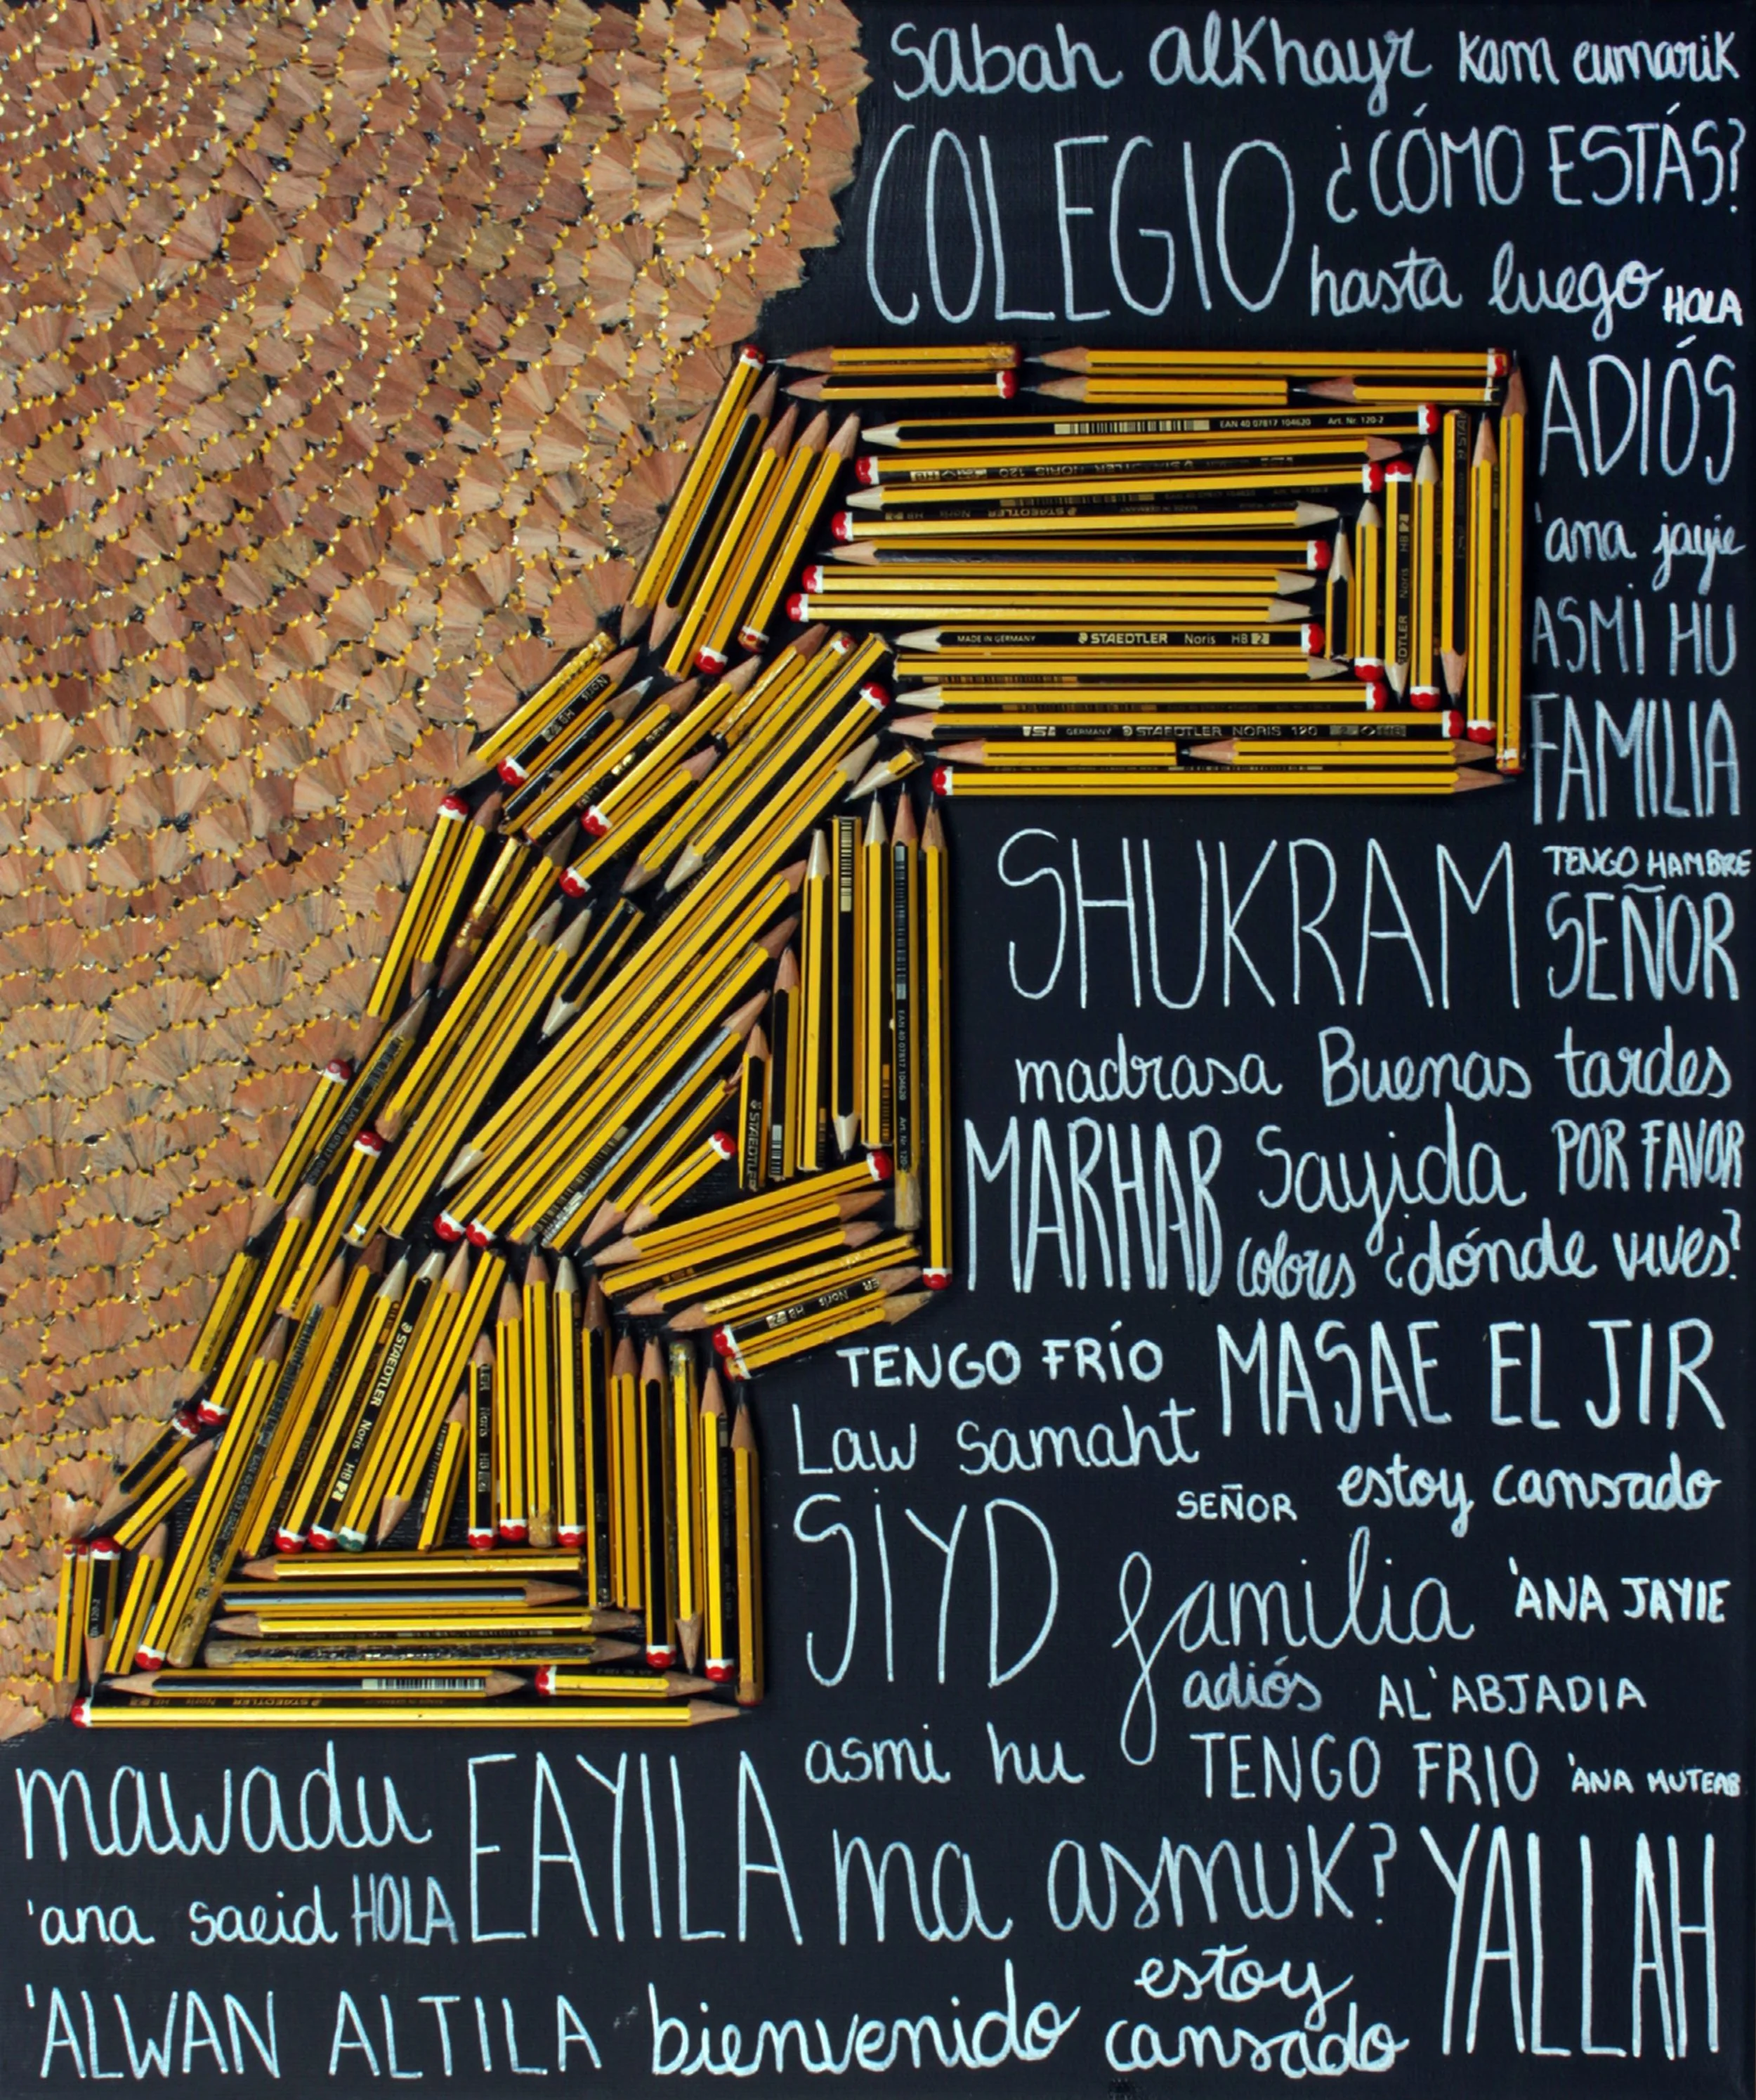 sabah alkhayr kam eumarik
COLEGIO ¿CÓMO ESTÁS?
hasta luego HOLA
ADIÓS
EAN 40 07817 104620 Art. Nr. 120-2
'ana jayie
ASMI HU
MADE IN GERMANY STAEDTLER Noris HB 2
FAMILIA
GERMANY STAEDTLER NORIS 120
SHUKRAM TENGO HAMBRE
SEÑOR
madrasa Buenas tardes
MARHAB Sayida POR FAVOR
colores ¿dónde vives?
TENGO FRÍO MASAE EL JIR
STAEDTLER Noris HB 2
Law samaht
SEÑOR estoy cansado
SIYD familia 'ANA JAYIE
adiós AL'ABJADIA
asmi hu TENGO FRIO 'ANA MUTEAB
mawadu EAYILA ma asmuk? YALLAH
'ana saeid HOLA
'ALWAN ALTILA bienvenido estoy cansado